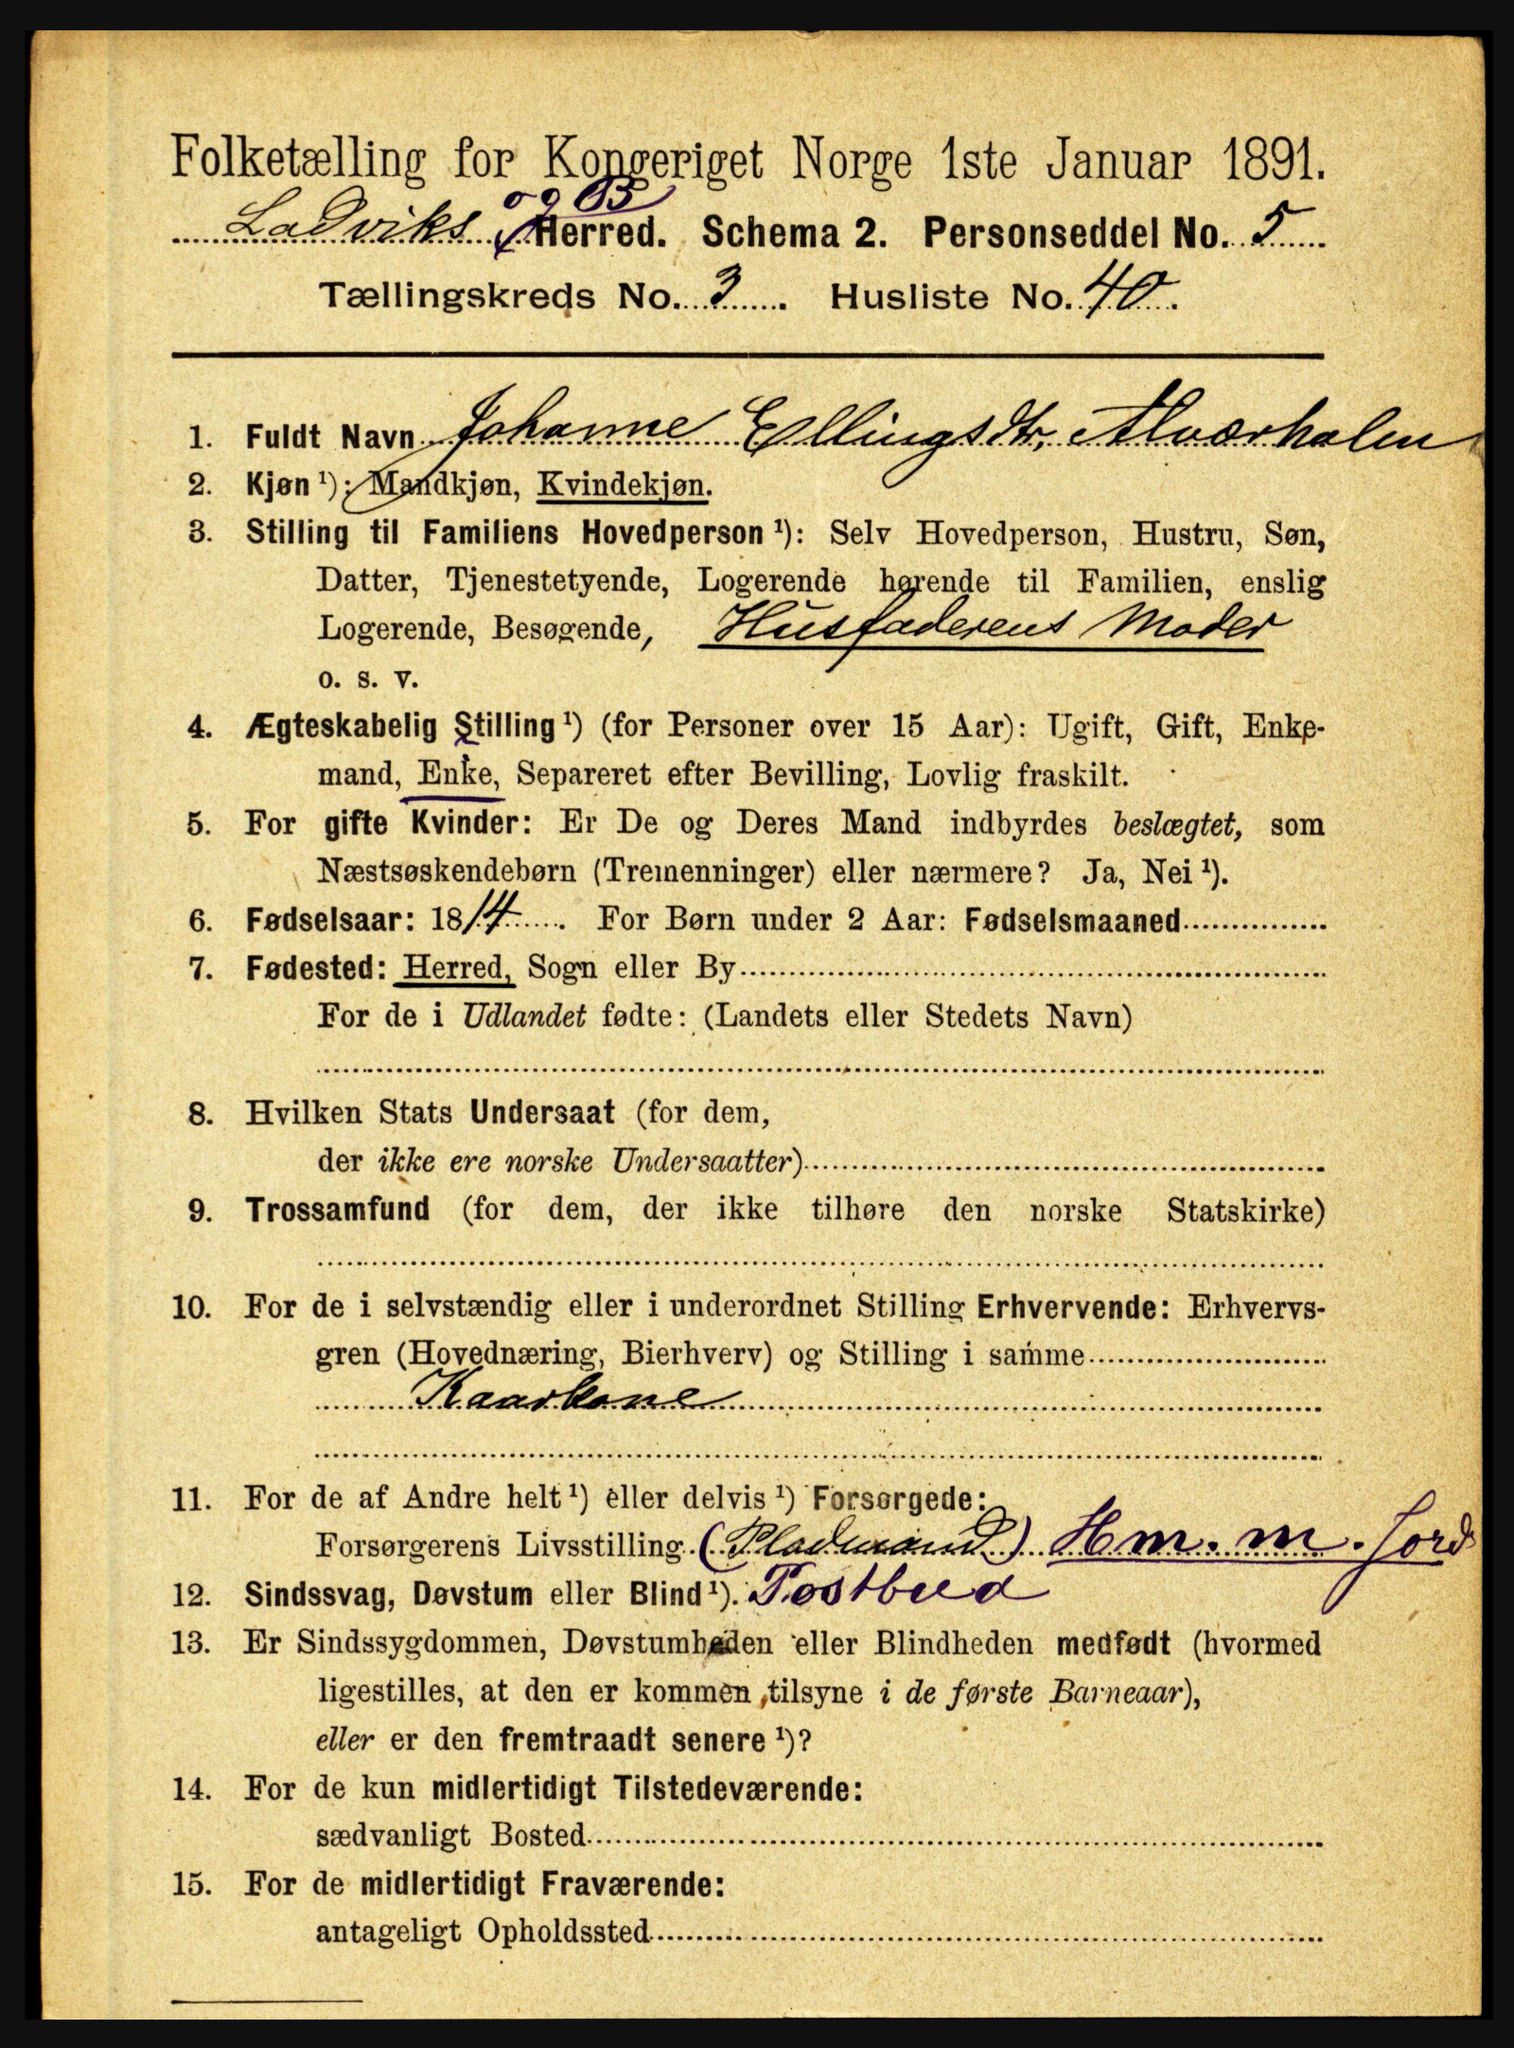 Folketælling for Kongeriget Norge 1ste Januar 1891.
og B
Ladviks Herred. Schema 2. Personseddel No. 5
Tællingskreds No. 3. Husliste No. 40.
1. Fuldt Navn Johanne Ellingsdtr. Alværhalen
2. Kjøn ¹): Mandkjøn, Kvindekjøn.
3. Stilling til Familiens Hovedperson ¹): Selv Hovedperson, Hustru, Søn,
Datter, Tjenestetyende, Logerende hørende til Familien, enslig
Logerende, Besøgende, Husfaderens Moder
o. s. v.
4. Ægteskabelig Stilling ¹) (for Personer over 15 Aar): Ugift, Gift, Enke-
mand, Enke, Separeret efter Bevilling, Lovlig fraskilt.
5. For gifte Kvinder: Er De og Deres Mand indbyrdes beslægtet, som
Næstsøskendebørn (Tremenninger) eller nærmere? Ja, Nei ¹).
6. Fødselsaar: 1814. For Børn under 2 Aar: Fødselsmaaned
7. Fødested: Herred, Sogn eller By
For de i Udlandet fødte: (Landets eller Stedets Navn)
8. Hvilken Stats Undersaat (for dem,
der ikke ere norske Undersaatter)
9. Trossamfund (for dem, der ikke tilhøre den norske Statskirke)
10. For de i selvstændig eller i underordnet Stilling Erhvervende: Erhvervs-
gren (Hovednæring, Bierhverv) og Stilling i samme
Kaarkone
11. For de af Andre helt ¹) eller delvis ¹) Forsørgede:
Forsørgerens Livsstilling (Pladmand) Hm. m. Jord
12. Sindssvag, Døvstum eller Blind ¹). Postbud
13. Er Sindssygdommen, Døvstumheden eller Blindheden medfødt (hvormed
ligestilles, at den er kommen tilsyne i de første Barneaar),
eller er den fremtraadt senere ¹)?
14. For de kun midlertidigt Tilstedeværende:
sædvanligt Bosted
15. For de midlertidigt Fraværende:
antageligt Opholdssted